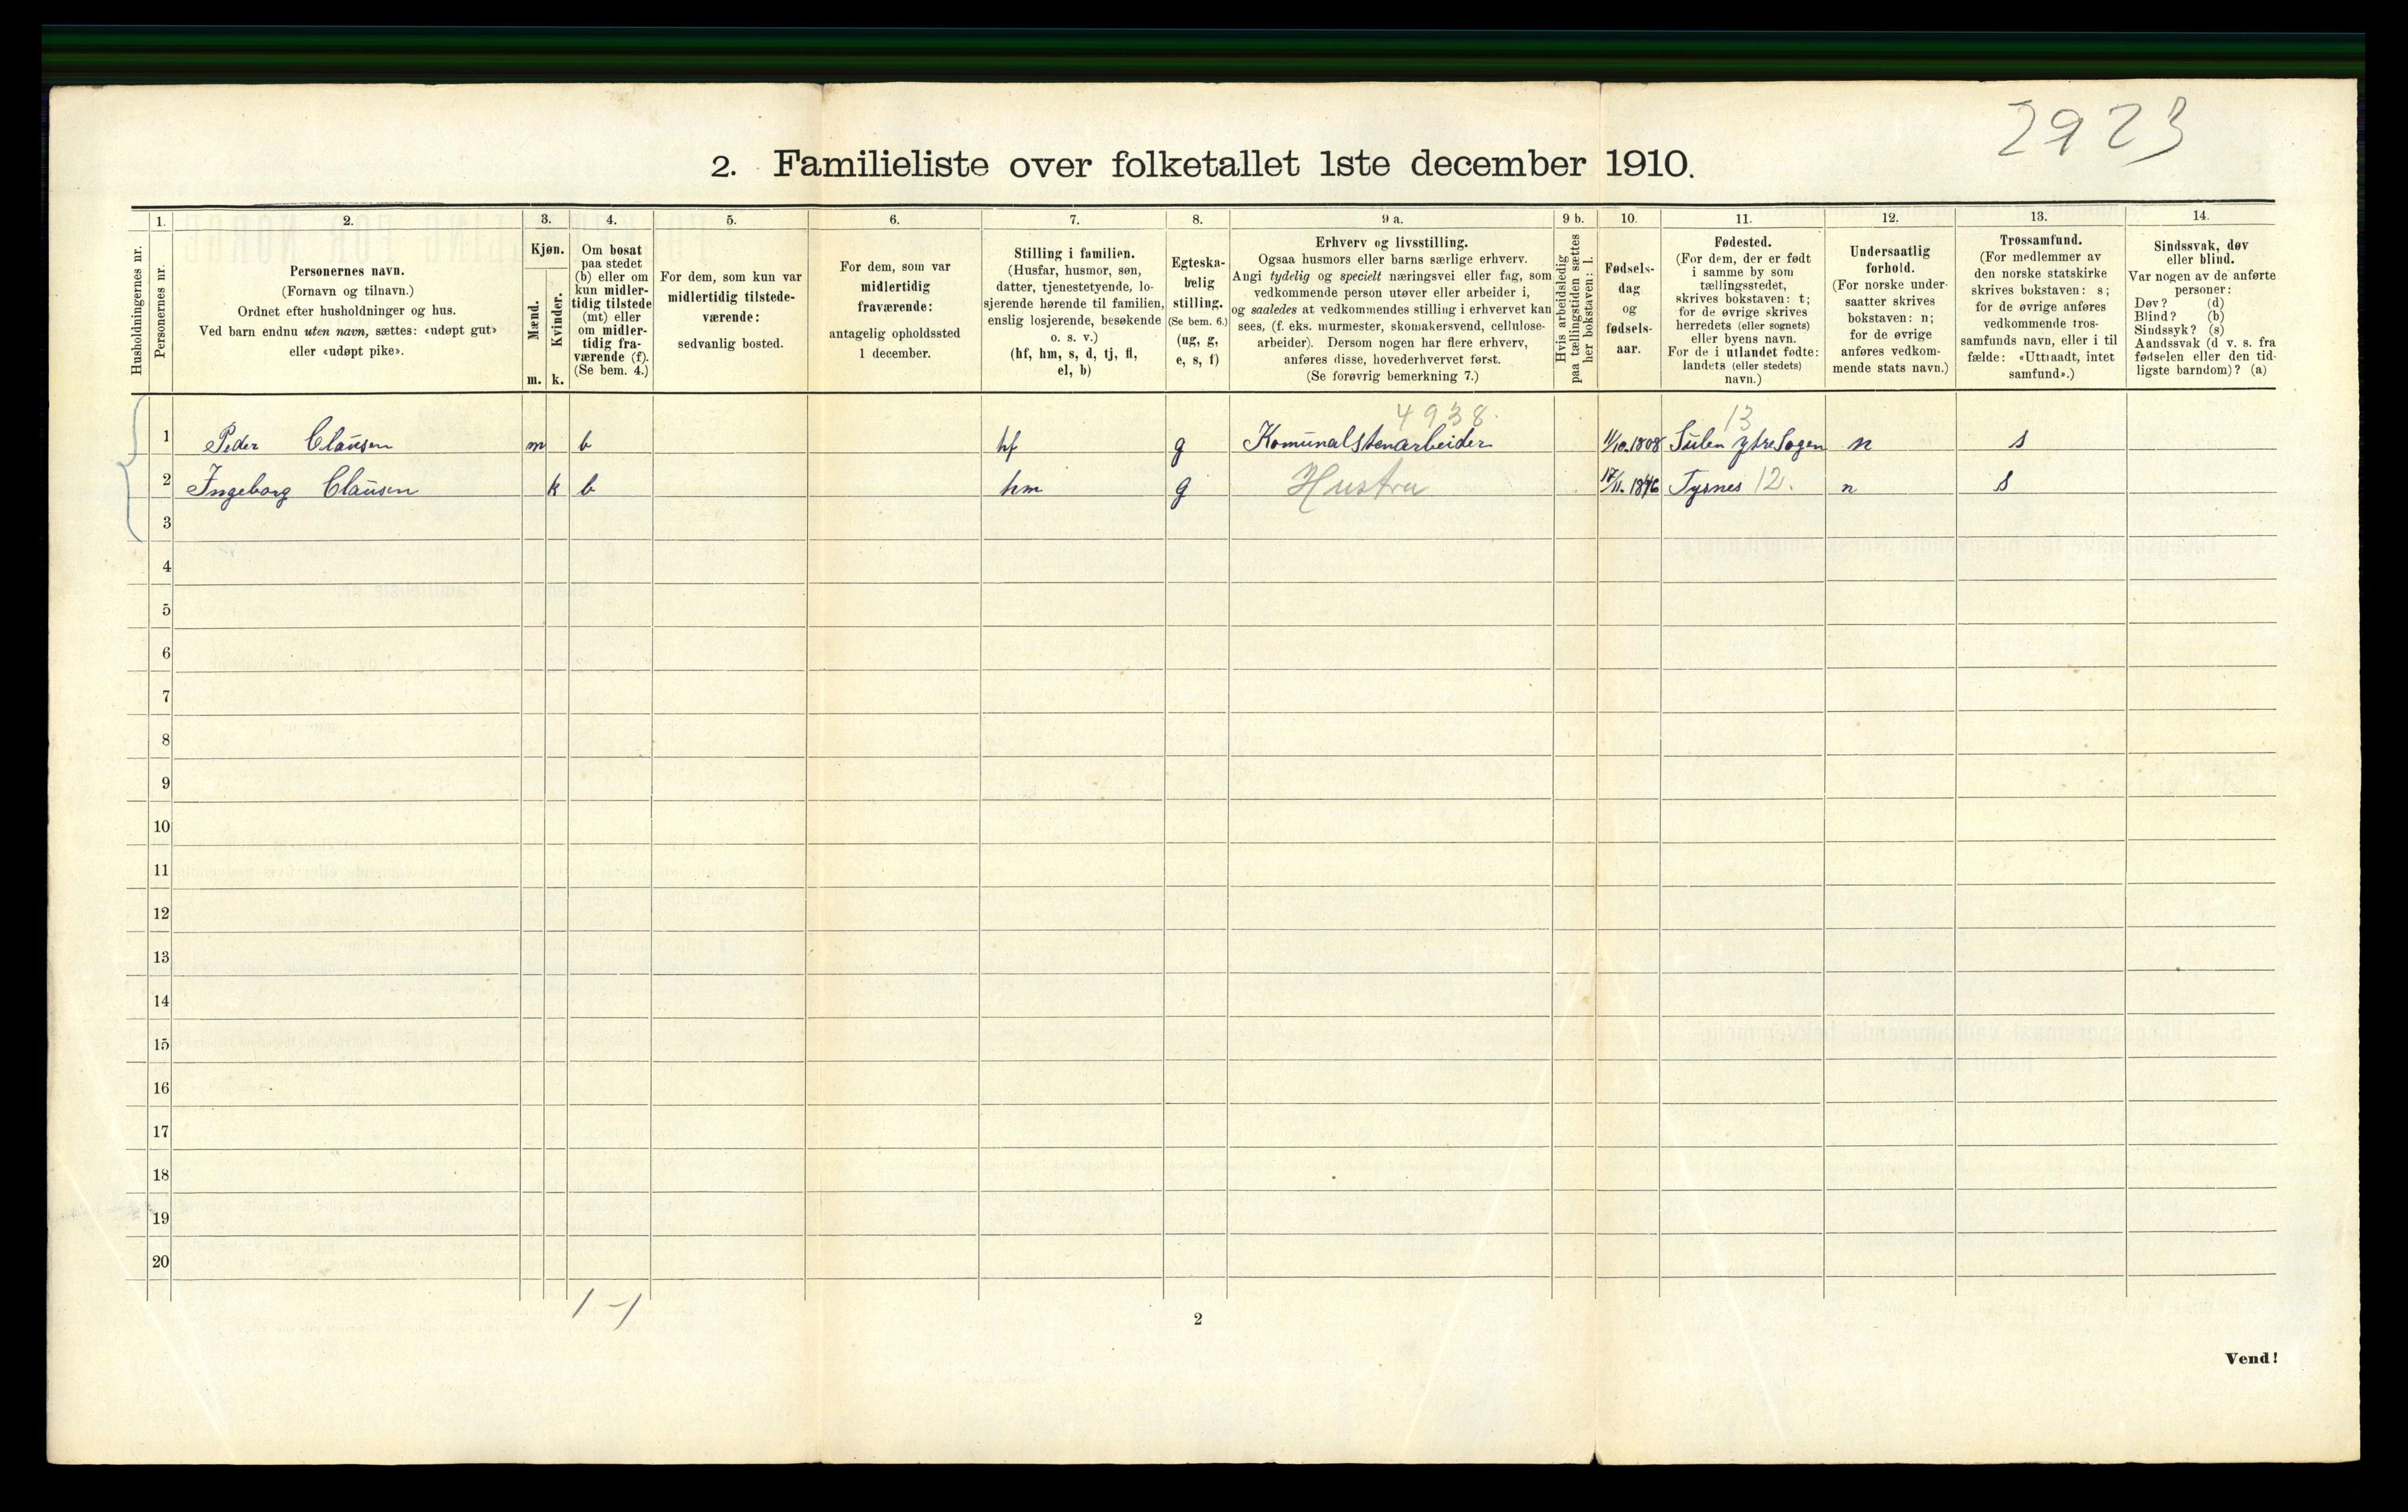 2923
2. Familieliste over folketallet 1ste december 1910.
Husholdningernes nr.
1.
Personernes nr.
2.
Personernes navn.
(Fornavn og tilnavn.)
Ordnet efter husholdninger og hus.
Ved barn endnu uten navn, sættes: «udøpt gut»
eller «udøpt pike».
3.
Kjøn.
Mænd.
Kvinder.
m. k.
4.
Om bosat
paa stedet
(b) eller om
kun midler-
tidig tilstede
(mt) eller
om midler-
tidig fra-
værende (f).
(Se bem. 4.)
5.
For dem, som kun var
midlertidig tilstede-
værende:
sedvanlig bosted.
6.
For dem, som var
midlertidig
fraværende:
antagelig opholdssted
1 december.
7.
Stilling i familien.
(Husfar, husmor, søn,
datter, tjenestetyende, lo-
sjerende hørende til familien,
enslig losjerende, besøkende
o. s. v.)
(hf, hm, s, d, tj, fl,
el, b)
8.
Egteska-
belig
stilling.
(Se bem. 6.)
(ug, g,
e, s, f)
9 a.
Erhverv og livsstilling.
Ogsaa husmors eller barns særlige erhverv.
Angi tydelig og specielt næringsvei eller fag, som
vedkommende person utøver eller arbeider i,
og saaledes at vedkommendes stilling i erhvervet kan
sees, (f. eks. murmester, skomakersvend, cellulose-
arbeider). Dersom nogen har flere erhverv,
anføres disse, hovederhvervet først.
(Se forøvrig bemerkning 7.)
9 b.
Hvis arbeidsledig
paa tællingstiden sættes
her bokstaven: l.
10.
Fødsels-
dag
og
fødsels-
aar.
11.
Fødested.
(For dem, der er født
i samme by som
tællingsstedet,
skrives bokstaven: t;
for de øvrige skrives
herredets (eller sognets)
eller byens navn.
For de i utlandet fødte:
landets (eller stedets)
navn.)
12.
Undersaatlig
forhold.
(For norske under-
saatter skrives
bokstaven: n;
for de øvrige
anføres vedkom-
mende stats navn.)
13.
Trossamfund.
(For medlemmer av
den norske statskirke
skrives bokstaven: s;
for de øvrige anføres
vedkommende tros-
samfunds navn, eller i til
fælde: «Uttraadt, intet
samfund».)
14.
Sindssvak, døv
eller blind.
Var nogen av de anførte
personer:
Døv? (d)
Blind? (b)
Sindssyk? (s)
Aandssvak (d v. s. fra
fødselen eller den tid-
ligste barndom)? (a)
4938. 13
1 Peder Clausen m b hf g Komunalstenarbeider Sulen ytre Sogen n s
2 Ingeborg Clausen k b hm g Hustru Tysnes 12. n s
3
4
5
6
7
8
9
10
11
12
13
14
15
16
17
18
19
20
1-1
2
Vend!